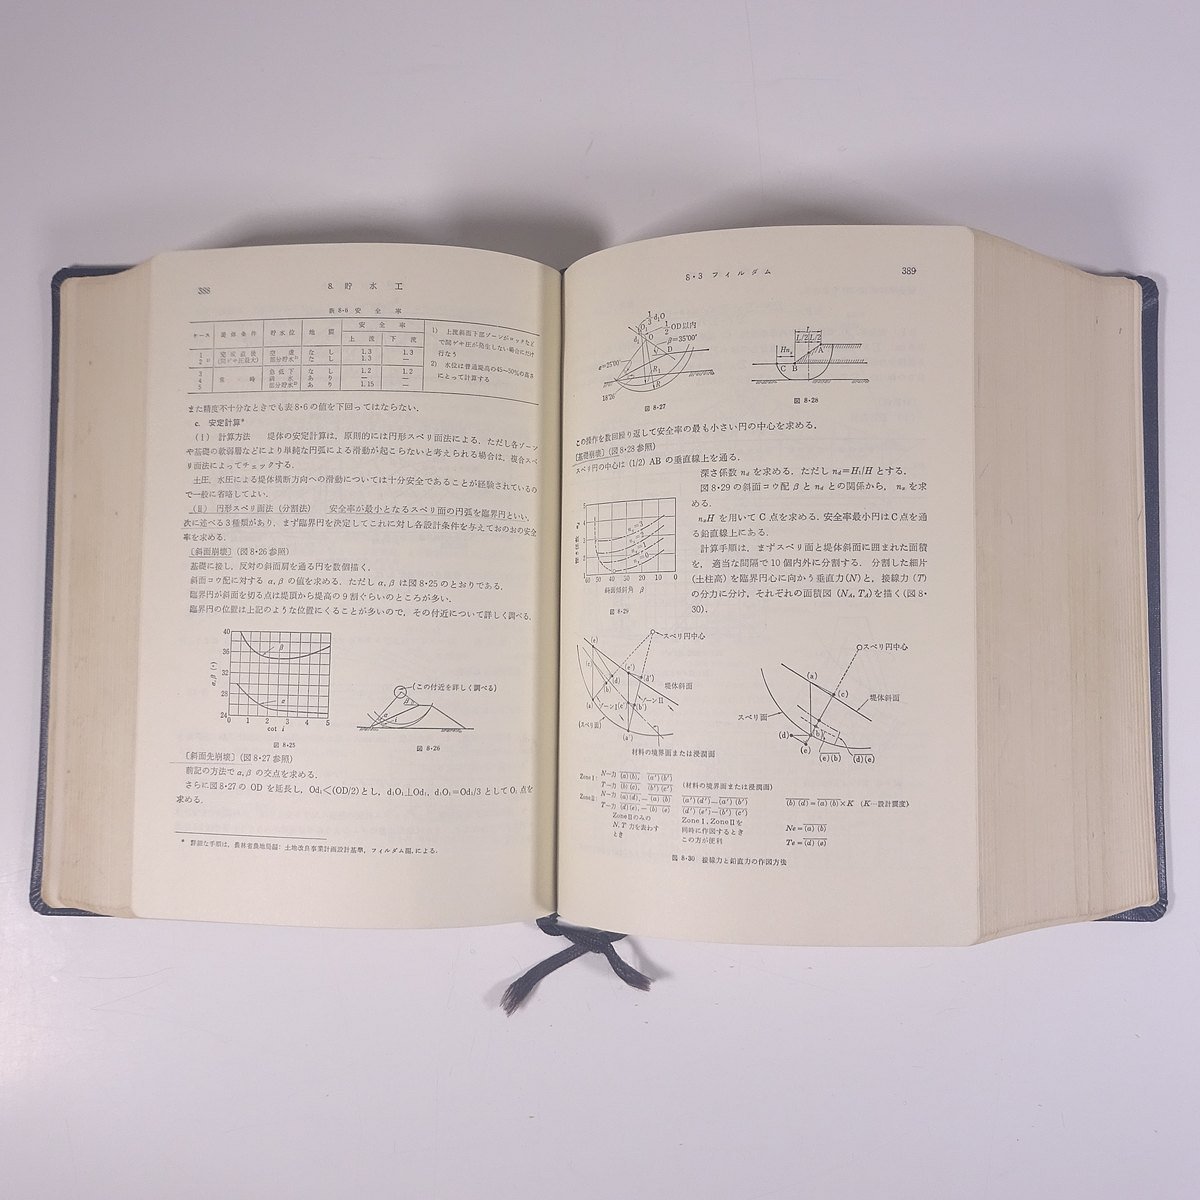 388
8. 貯水工
表8・6 安全率
ケース 堤体条件 貯水位 地震 安全率
上流 下流
1 完成直後 空虚 なし 1.3 1.3
2 (間ゲキ圧最大) 部分貯水 なし 1.3 —
3 急低下 なし 1.2 1.2
4 常時 満水 あり — —
5 部分貯水 あり 1.15 —
1) 上流斜面下部ゾーンがロックなど
で間ゲキ圧が発生しない場合にだけ
行なう
2) 水位は普通堤高の45~50%の高さ
にとって計算する
また精度不十分なときでも表8・6の値を下回ってはならない.
c. 安定計算*
(I) 計算方法 堤体の安定計算は,原則的には円形スベリ面法による.ただし各ゾーン
や基礎の軟弱層などにより単純な円弧による滑動が起こらないと考えられる場合は,複合スベ
リ面法によってチェックする.
土圧,水圧による堤体横断方向への滑動については十分安全であることが経験されているの
で一般に省略してよい.
(II) 円形スベリ面法(分割法) 安全率が最小となるスベリ面の円弧を臨界円といい,
次に述べる3種類があり,まず臨界円を決定してこれに対し各設計条件を与えておのおの安全
率を求める.
〔斜面崩壊〕(図8・26参照)
基礎に接し,反対の斜面肩を通る円を数個描く.
斜面コウ配に対する α,β の値を求める.ただし α,β は図8・25のとおりである.
臨界円が斜面を切る点は堤頂から堤高の9割ぐらいのところが多い.
臨界円の位置は上記のような位置にくることが多いので,その付近について詳しく調べる.
40
36
32
28
24
α,β(°)
β
α
0 1 2 3 4 5
cot i
図 8・25
(この付近を詳しく調べる)
図 8・26
〔斜面先崩壊〕(図8・27参照)
前記の方法で α,β の交点を求める.
さらに図8・27の OD を延長し,Od₁<(OD/2)とし,d₁O₁⊥Od₁, d₁O₁=Od₁/3として O₁ 点を
求める.
* 詳細な手順は,農林省農地局編:土地改良事業計画設計基準,フィルダム編,による.
8・3 フィルダム
389
OD以内
β=35°00′
α=25°00′
18°26′
図 8・27
L
L/2 L/2
A
B
C
図 8・28
この操作を数回繰り返して安全率の最も小さい円の中心を求める.
〔基礎崩壊〕(図8・28参照)
スベリ円の中心は (1/2) AB の垂直線上を通る.
深さ係数 nd を求める.ただし nd=H₁/H とする.
図8・29の斜面コウ配 β と nd との関係から,nx を求
める.
nxH を用いて C 点を求める.安全率最小円はC点を通
る鉛直線上にある.
計算手順は,まずスベリ面と堤体斜面に囲まれた面積
を,適当な間隔で10個内外に分割する.分割した細片
(土柱高)を臨界円心に向かう垂直力(N)と,接線力(T)
の分力に分け,それぞれの面積図(NA, TA)を描く(図8・
30).
斜面傾斜角 β
図 8・29
スベリ円中心
堤体斜面
ゾーンI
ゾーンII
(スベリ面)
材料の境界面または浸潤面
スベリ円中心
堤体斜面
スベリ面
(a)
(c)
(d)
(b)
(e)
(e)(b)
(d)(e)
Zone I: N—力 (a)(b), (a′)(b′)
T—力 (b)(c), (b′)(c′) (材料の境界面または浸潤面)
Zone II: N—力 (a)(d),—(a)(b) (a′)(d′)—(a′)(b′) (b)(d)=(a)(b)×K (K…設計震度)
T—力 (d)(e),—(b)(c) (d′)(e′)—(b′)(c′)
Zone IIのみの Zone I, Zone IIを Ne=(a)(b)
N, T 力を表わす 同時に作図するとき
とき この方が便利 Te=(d)(e)
図 8・30 接線力と鉛直力の作図方法